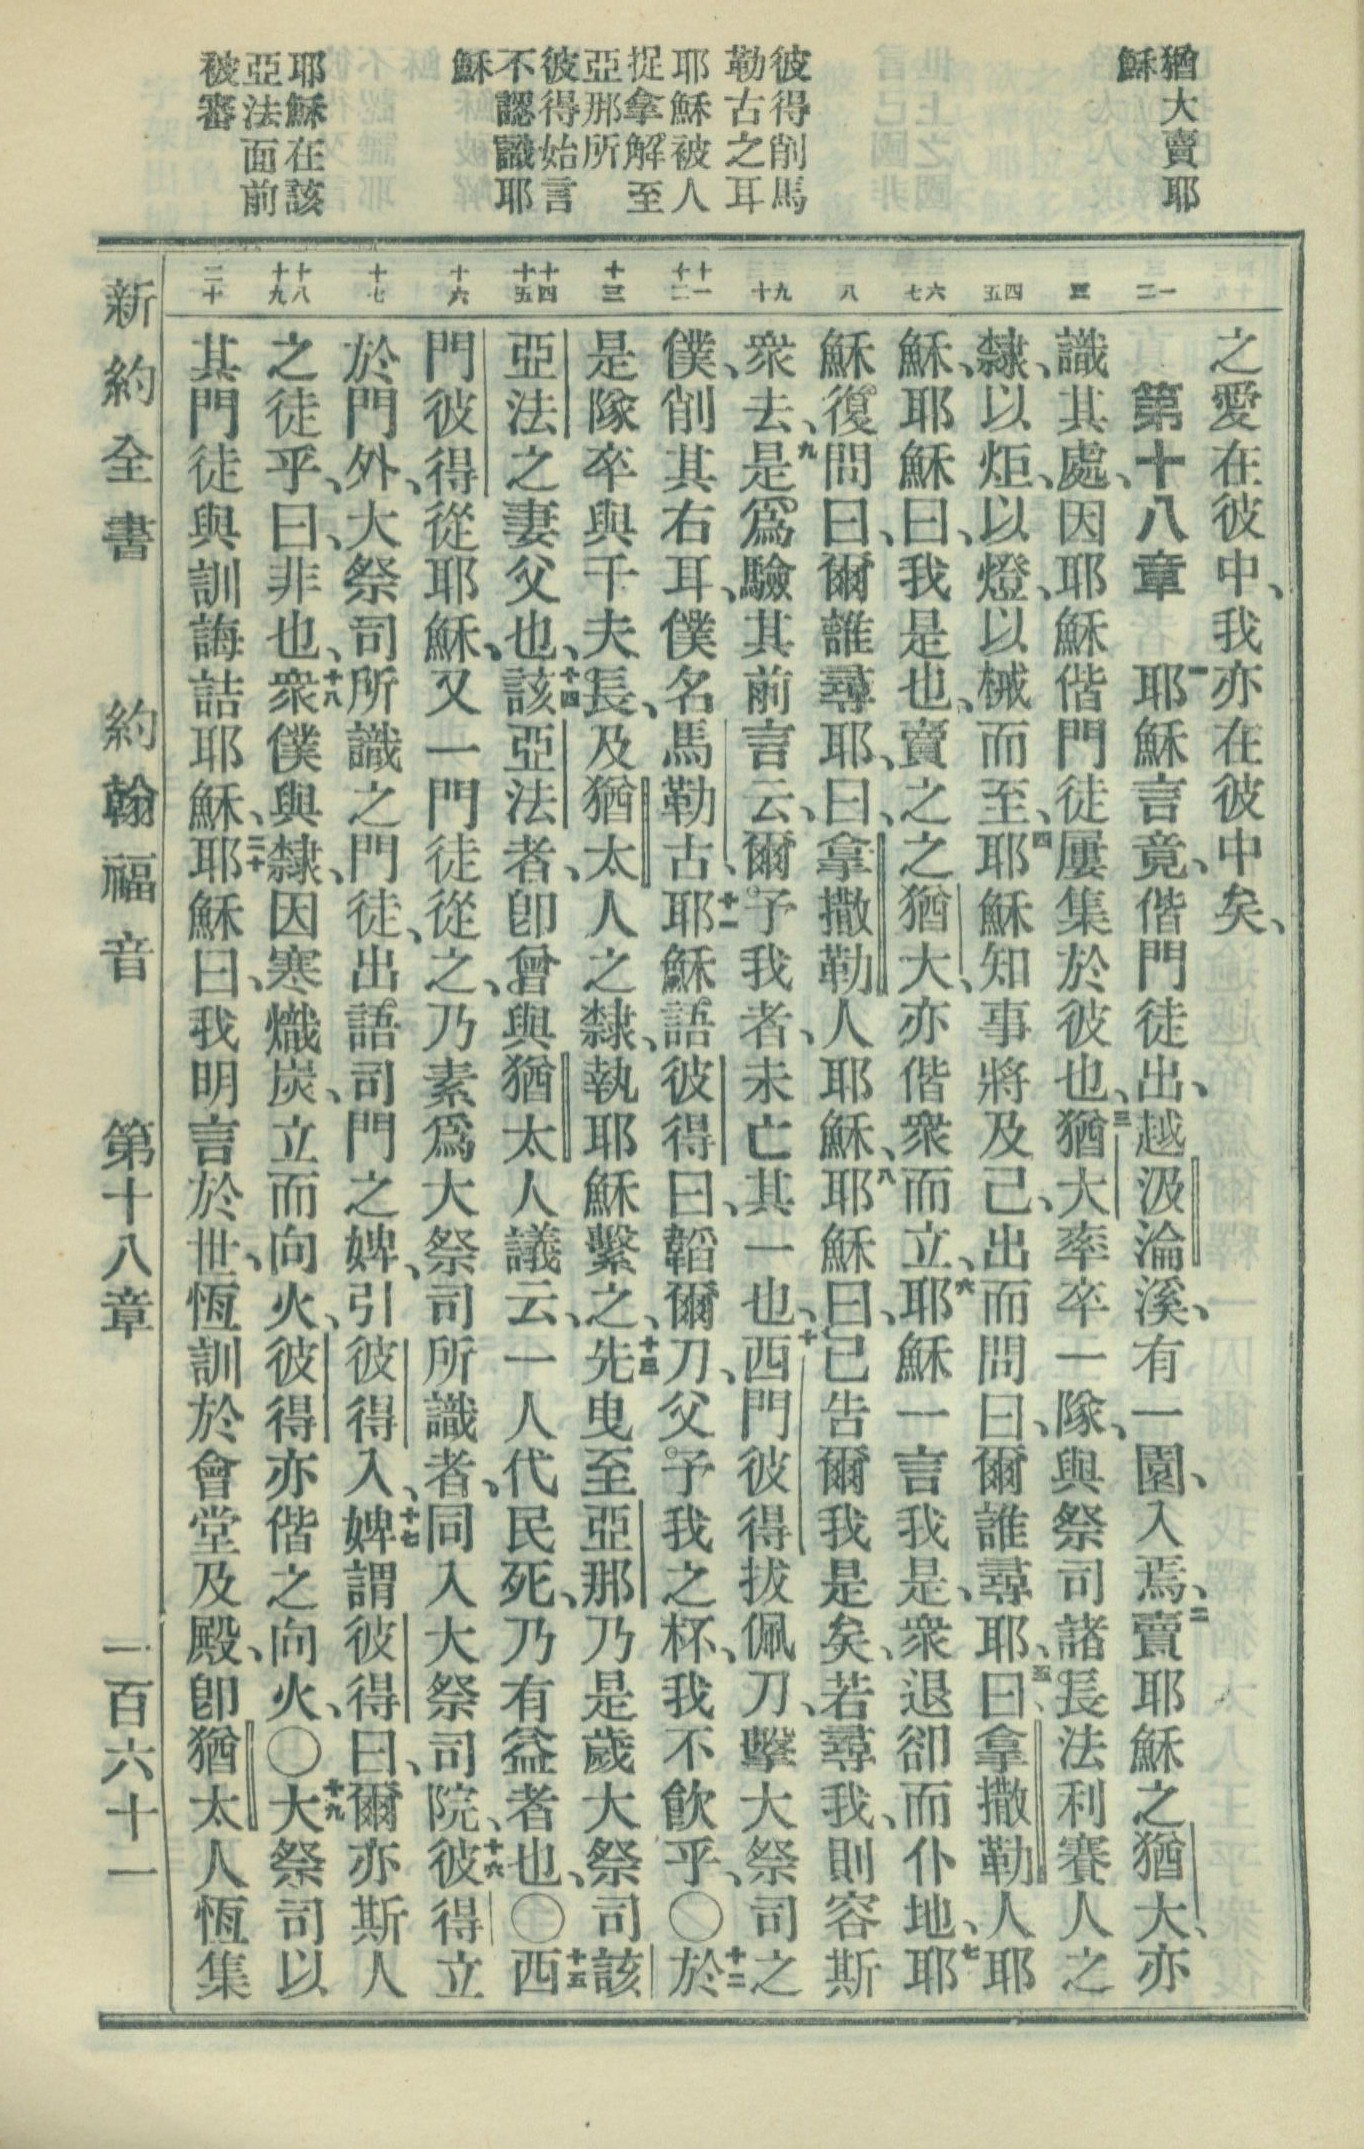 猶大賣耶
穌
彼得削馬
勒古之耳
耶穌被人
捉拿解至
亞那所
彼得始言
不認識耶
穌
耶穌在該
亞法面前
被審
一
二
三
四
五
六
七
八
九
十
十一
十二
十三
十四
十五
十六
十七
十八
十九
二十
之愛在彼中、我亦在彼中矣、
第十八章 一耶穌言竟、偕門徒出、越汲淪溪、有一園、入焉、二賣耶穌之猶大、亦
識其處、因耶穌偕門徒屢集於彼也、三猶大率卒一隊、與祭司諸長法利賽人之
隸、以炬、以燈、以械而至、四耶穌知事將及己、出而問曰、爾誰尋耶、五曰、拿撒勒人耶
穌、耶穌曰、我是也、賣之之猶大、亦偕衆而立、六耶穌一言我是、衆退卻而仆地、七耶
穌復問曰、爾誰尋耶、曰、拿撒勒人耶穌、八耶穌曰、已告爾我是矣、若尋我、則容斯
衆去、九是爲驗其前言云、爾予我者、未亡其一也、十西門彼得拔佩刀、擊大祭司之
僕、削其右耳、僕名馬勒古、十一耶穌語彼得曰、韜爾刀、父予我之杯、我不飲乎、〇十二於
是隊卒與千夫長、及猶太人之隸、執耶穌繫之、十三先曳至亞那、乃是歲大祭司該
亞法之妻父也、十四該亞法者、卽曾與猶太人議云、一人代民死、乃有益者也、〇十五西
門彼得從耶穌、又一門徒從之、乃素爲大祭司所識者、同入大祭司院、十六彼得立
於門外、大祭司所識之門徒、出語司門之婢、引彼得入、十七婢謂彼得曰、爾亦斯人
之徒乎、曰、非也、十八衆僕與隸、因寒熾炭、立而向火、彼得亦偕之向火、〇十九大祭司以
其門徒與訓誨詰耶穌、二十耶穌曰、我明言於世、恆訓於會堂及殿、卽猶太人恆集
新約全書 約翰福音 第十八章 一百六十一